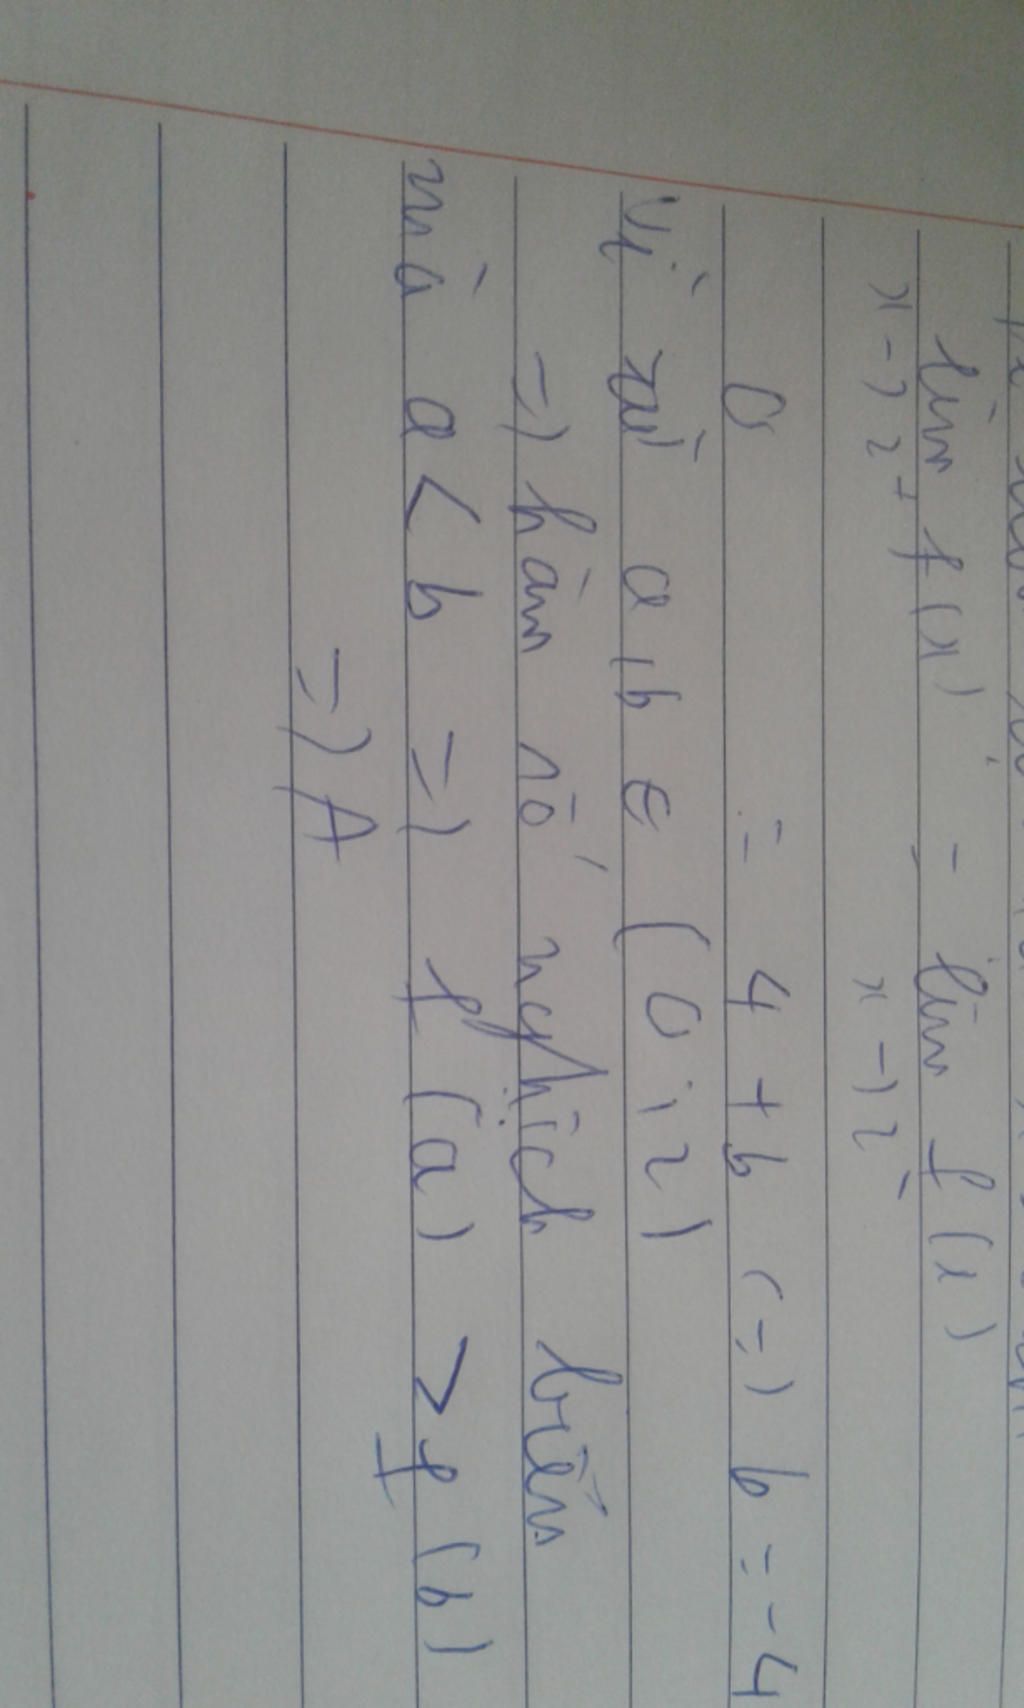 lim f(x) = lim f(x)
x->2+ x->2-
0 = 4 + b <=> b = -4
vì a, b ∈ (0; 2)
=> hàm số nghịch biến
mà a < b => f(a) > f(b)
=> A